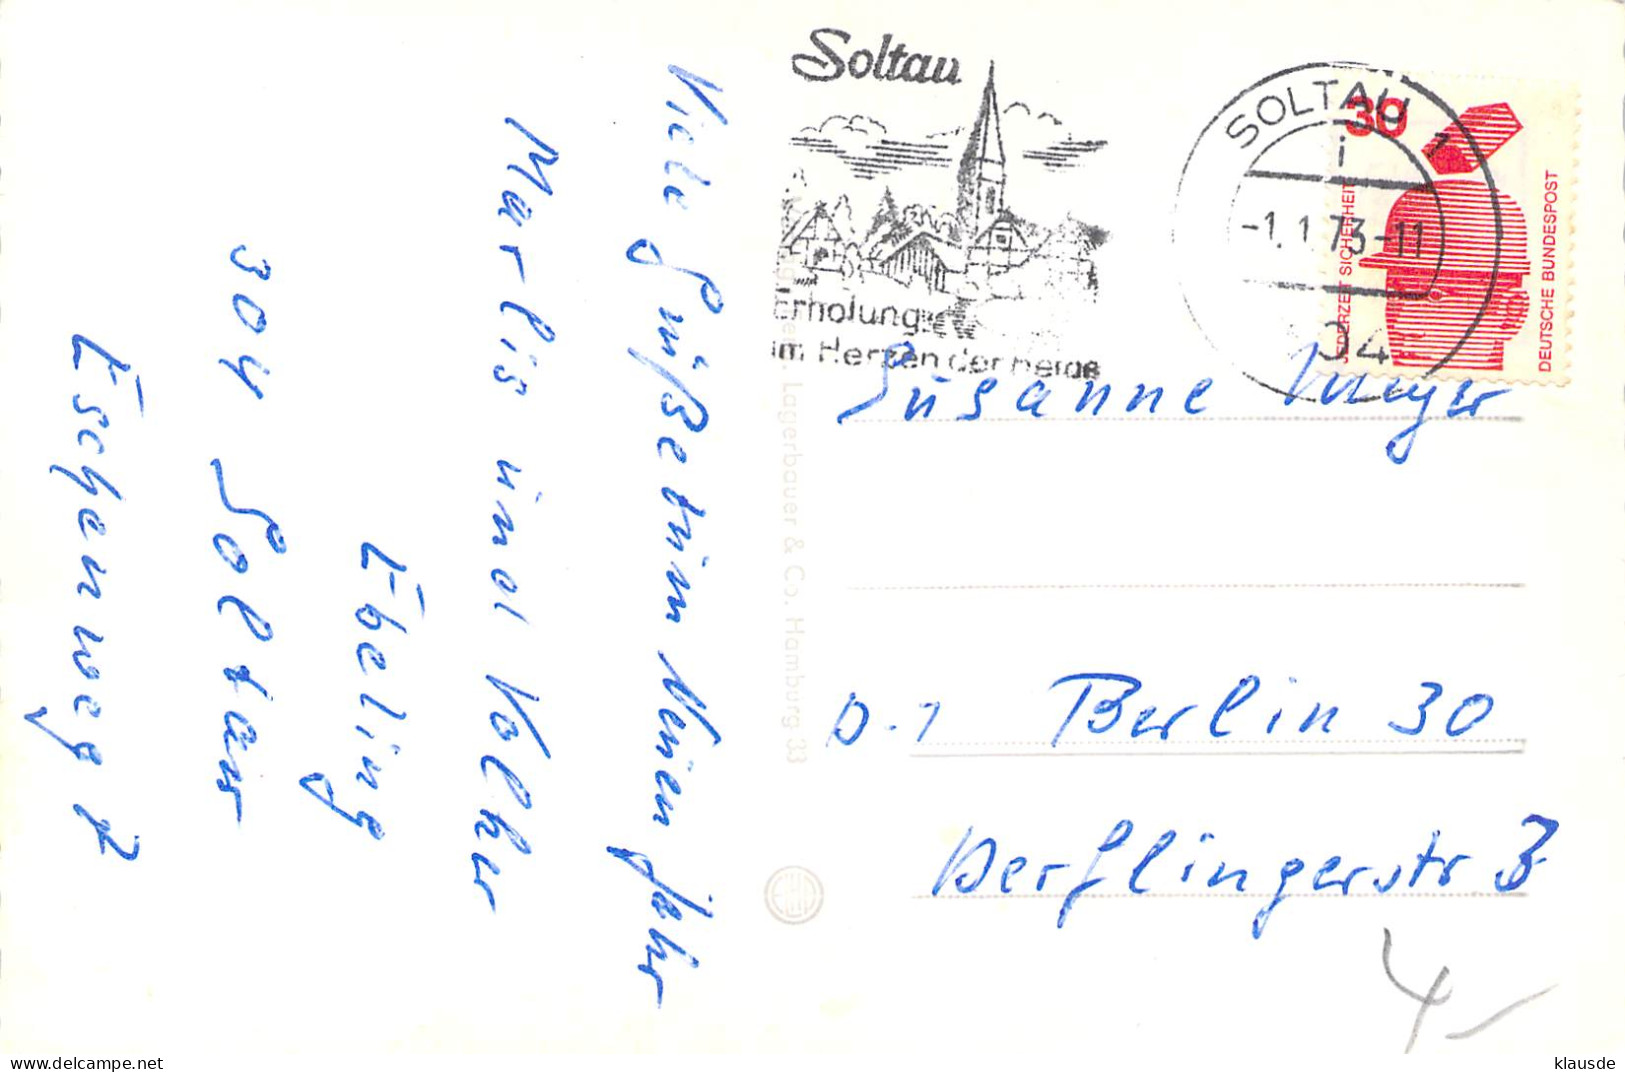 Viele Grüße zum Neuen Jahr
Marlis und Volker
Ebeling
304 Soltau
Eschenweg 7
Soltau
Erholung
im Herzen der Heide
SOLTAU 1
i
-1.1.73-11
304
30
JEDERZEIT SICHERHEIT
DEUTSCHE BUNDESPOST
Lagerbauer & Co. Hamburg 33
Susanne Meyer
D-1 Berlin 30
Derflingerstr 3
4,-
klausde